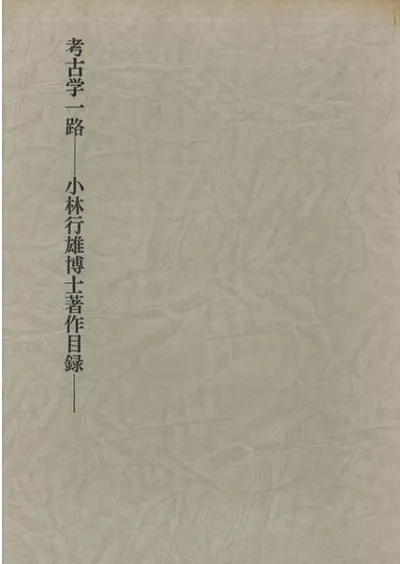 考古学一路——小林行雄博士著作目録——